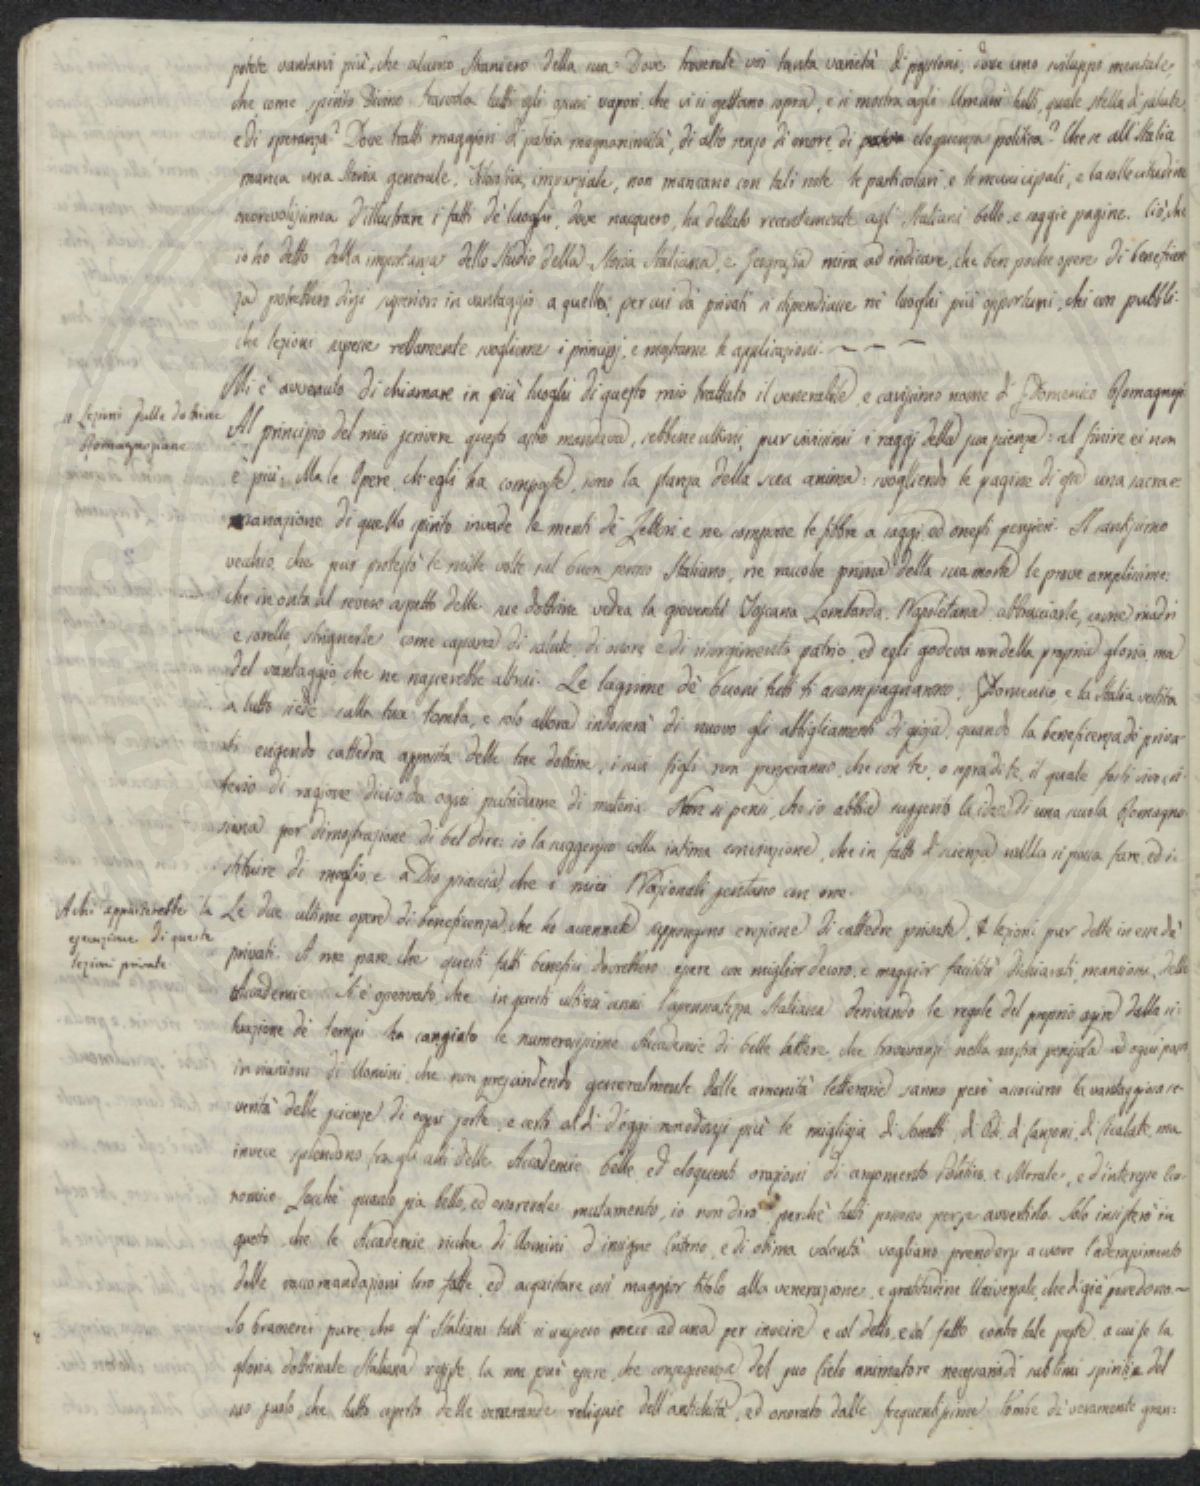 potete vantarvi più, che alcuno Straniero della sua. Dove troverete voi tanta varietà di passioni, dove uno sviluppo mentale,
che come spirito Divino trasvola tutti gli oscuri vapori, che vi si gettano sopra, e si mostra agli Umani tutti, quale stella di salute,
e di speranza? Dove tratti maggiori di patria magnanimità, di alto senso di onore, di eloquenza politica? Che se all'Italia
manca una Storia generale, filosofica, imparziale, non mancano con tali note le particolari, e le municipali, e la sollecitudine
onorevolissima d'illustrare i fatti de' luoghi, dove nacquero, ha dettato recentemente agli Italiani belle, e sagge pagine. Ciò, che
io ho detto della importanza dello Studio della Storia Italiana, e Geografia mira ad indicare, che ben poche opere di beneficen
za potrebbero dirsi superiori in vantaggio a quella, per cui da' privati si stipendiasse ne' luoghi più opportuni, chi con pubbli:
che lezioni sapesse rettamente svogliere i principj, e mostrarne le applicazioni. — — —
Mi è avvenuto di chiamare in più luoghi di questo mio trattato il venerabile, e carissimo nome di Gdomenico Romagnosi
Lezioni sulle dottrine
Romagnosiane
Al principio del mio scrivere questo astro mandava, sebbene ultimi, pur vivissimi i raggi della sua scienza: al finire ei non
è più. Ma le Opere, ch'egli ha composte, sono la stanza della sua anima: svogliendo le pagine di esse una sacra e
manazione di quello spirito invade le menti de' Lettori e ne compone le fibbre a saggi ed onesti pensieri. Il santissimo
vecchio, che pur protestò le mille volte sul buon senno Italiano, ne raccolse prima della sua morte le prove amplissime:
che in onta al severo aspetto delle sue dottrine vedea la gioventù Toscana Lombarda, Napoletana abbracciarle, come madri
e sorelle, stringerle come caparra di salute, di onore e di risorgimento patrio, ed egli godeva non della propria gloria, ma
del vantaggio che ne nascerebbe altrui. Le lagrime de' buoni tutti ti accompagnarono, Gdomenico, e la Italia vestita
a lutto siede sulla tua tomba, e solo allora indosserà di nuovo gli abbigliamenti di gioja, quando la beneficenza de' priva
ti erigendo cattedra apposita delle tue dottrine, i suoi figli non penseranno, che con te, o sopra di te, il quale fosti vivo cri
terio di ragione diviso da ogni putridume di materia. Non si pensi, che io abbia suggerito la idea di una scuola Romagno
siana per dimostrazione di bel dire: io la suggerisco colla intima convinzione, che in fatto di scienza nulla si possa fare, ed i:
stituire di meglio, e a Dio piaccia, che i miei Nazionali sentano con me.
A chi apparterrebbe la
esecuzione di queste
lezioni private
Le due ultime opere di beneficenza, che ho accennate suppongono erezione di cattedre private, e lezioni pur dette in esse da'
privati. A me pare, che questi fatti benefici dovrebbero essere con miglior decoro, e maggior facilità dichiarati, mansione, delle
Accademie. Si è osservato, che in questi ultimi anni l'assennatezza Italiana derivando le regole del proprio agire dalla si:
tuazione de' tempi ha cangiato le numerosissime Accademie di belle lettere, che trovavansi nella nostra penisola ad ogni passo
in riunioni di Uomini, che non prescindendo generalmente dalle amenità letterarie sanno però associarvi la vantaggiosa se:
verità delle scienze di ogni sorte, e certo al dì d'oggi non odonsi più le migliaja di Sonetti, di Odi, di Canzoni, di Cicalate, ma
invece splendono fra gli atti delle Accademie belle, ed eloquenti orazioni di argomento Politico e Morale, e d'interesse Eco
nomico. Locchè quanto sia bello, ed onorevole mutamento, io non dirò perchè tutti possono persè avvertirlo. Solo insisterò in
questo, che le Accademie ricche di Uomini d'insigne Criterio, e di ottima volontà vogliano prendersi a cuore l'adempimento
delle raccomandazioni loro fatte, ed acquistare così maggior titolo alla venerazione, e gratitudine Universale, che di già possedono. —
Io bramerei pure, che gl'Italiani tutti si unissero meco ad una per inveire e col detto, e col fatto contro tale peste, a cui se la
gloria dottrinale Italiana resiste, la non può essere, che conseguenza del suo Cielo animatore necessario di sublimi spiriti, e del
suo suolo, che tutto coperto delle venerande reliquie dell'antichità, ed onorato dalle frequentissime tombe di veramente gran: